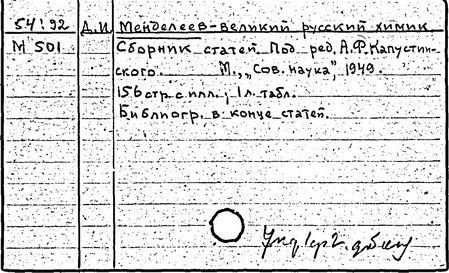 54:92 Д.И. Менделеев-великий русский химик.
М 501 Сборник статей. Под ред. А.Ф. Капустин-
ского. М., „Сов. наука", 1949.
156 стр. с илл.; 1 л. табл.
Библиогр. в конце статей.